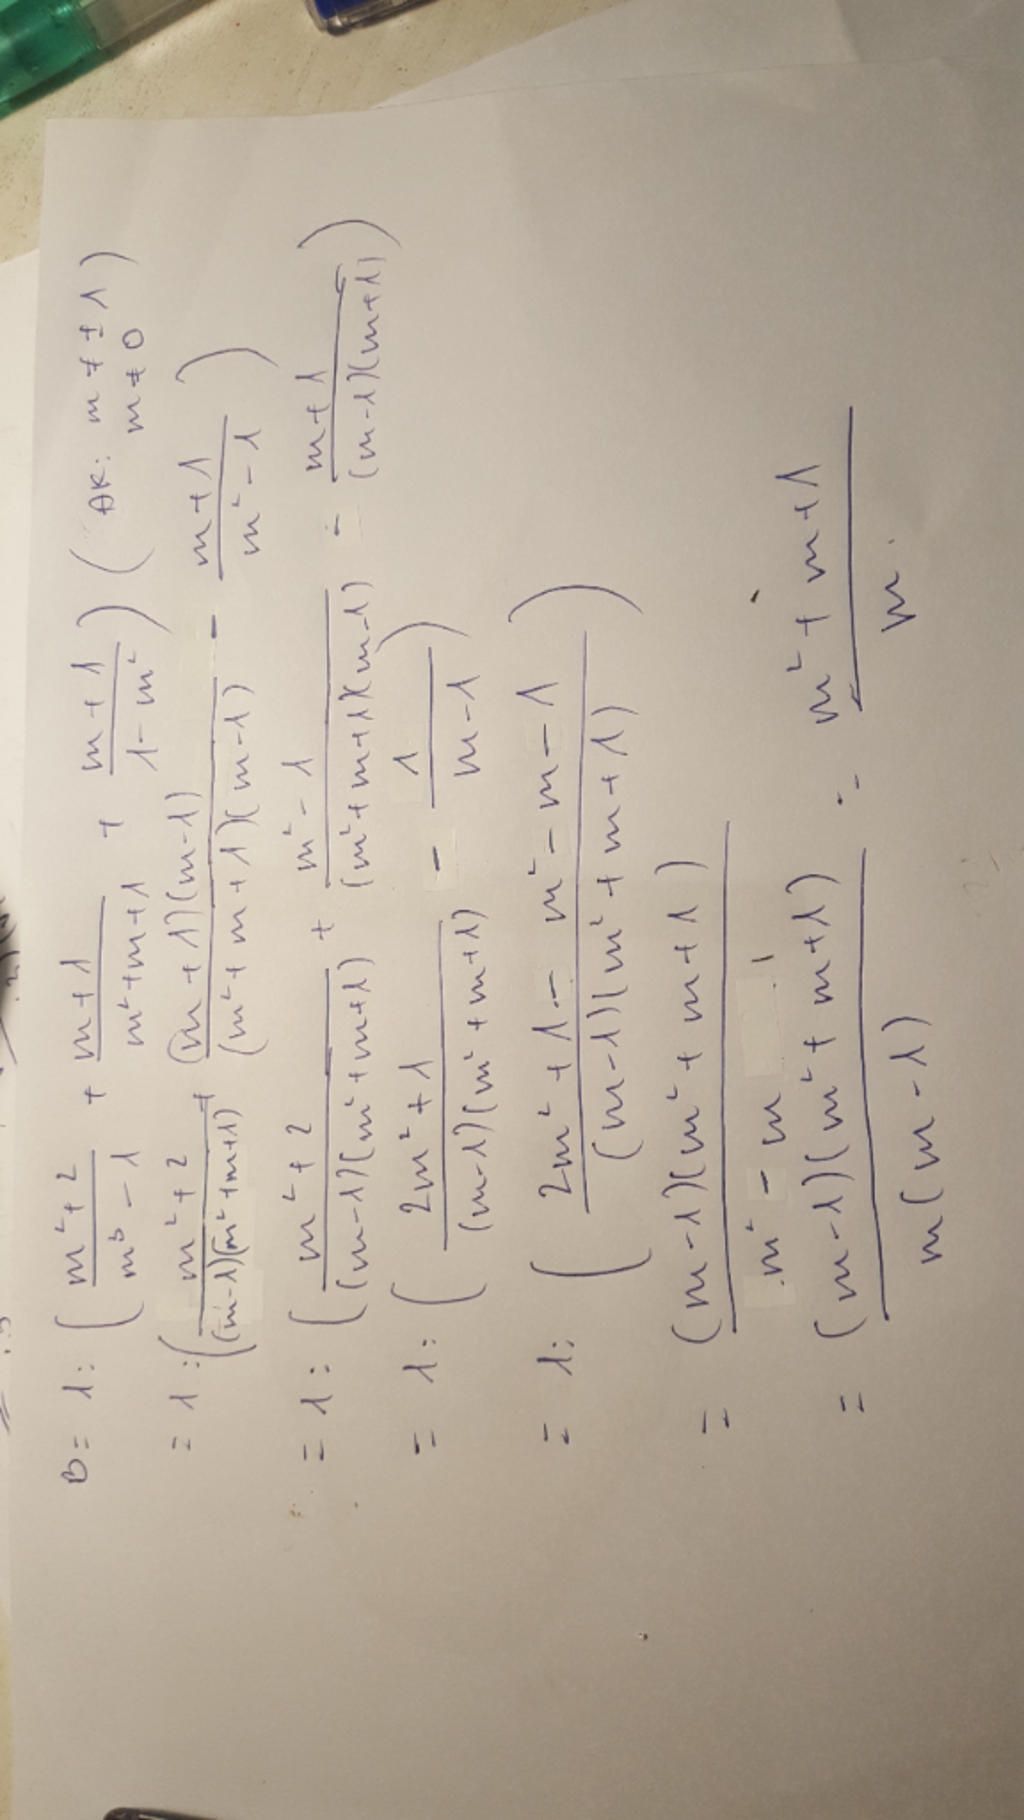 B = 1 : ( (m²+2)/(m³-1) + (m+1)/(m²+m+1) + (m+1)/(1-m²) ) ( ĐK: m ≠ ±1 )
m ≠ 0
= 1 : ( (m²+2)/((m-1)(m²+m+1)) + ((m+1)(m-1))/((m²+m+1)(m-1)) - (m+1)/(m²-1) )
= 1 : ( (m²+2)/((m-1)(m²+m+1)) + (m²-1)/((m²+m+1)(m-1)) - (m+1)/((m-1)(m+1)) )
= 1 : ( (2m²+1)/((m-1)(m²+m+1)) - 1/(m-1) )
= 1 : ( (2m²+1-m²-m-1)/((m-1)(m²+m+1)) )
= ((m-1)(m²+m+1))/(m²-m)
= ((m-1)(m²+m+1))/(m(m-1)) = (m²+m+1)/m.